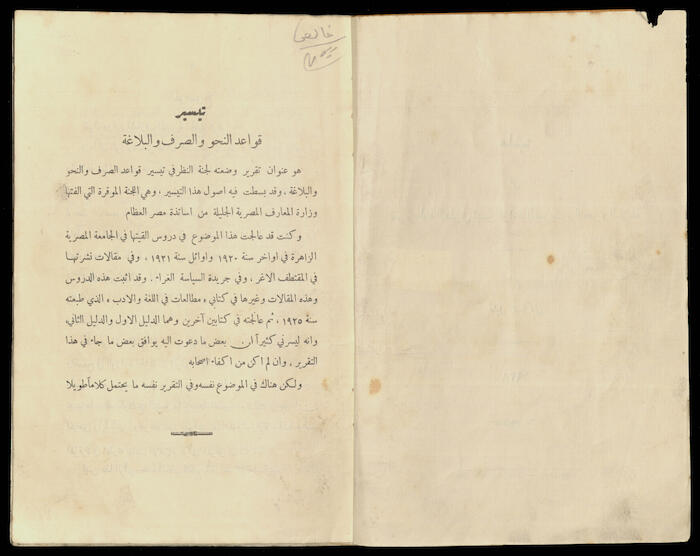 تيسير
قواعد النحو والصرف والبلاغة
هو عنوان تقرير وضعته لجنة النظر في تيسير قواعد الصرف والنحو
والبلاغة . وقد بسطت فيه اصول هذا التيسير ، وهي اللجنة الموقرة التي الفتها
وزارة المعارف المصرية الجليلة من اساتذة مصر العظام
وكنت قد عالجت هذا الموضوع في دروس القيتها في الجامعة المصرية
الزاهرة في اواخر سنة ١٩٢٠ واوائل سنة ١٩٢١ ، وفي مقالات نشرتها
في المقتطف الاغر ، وفي جريدة السياسة الغراء . وقد اثبت هذه الدروس
وهذه المقالات وغيرها في كتابي « مطالعات في اللغة والادب » الذي طبعته
سنة ١٩٢٥ ، ثم عالجته في كتابين آخرين وهما الدليل الاول والدليل الثاني
وانه ليسرني كثيراً ان بعض ما دعوت اليه يوافق بعض ما جاء في هذا
التقرير ، وان لم اكن من اكفاء اصحابه
ولكن هناك في الموضوع نفسه وفي التقرير نفسه ما يحتمل كلاماً طويلا